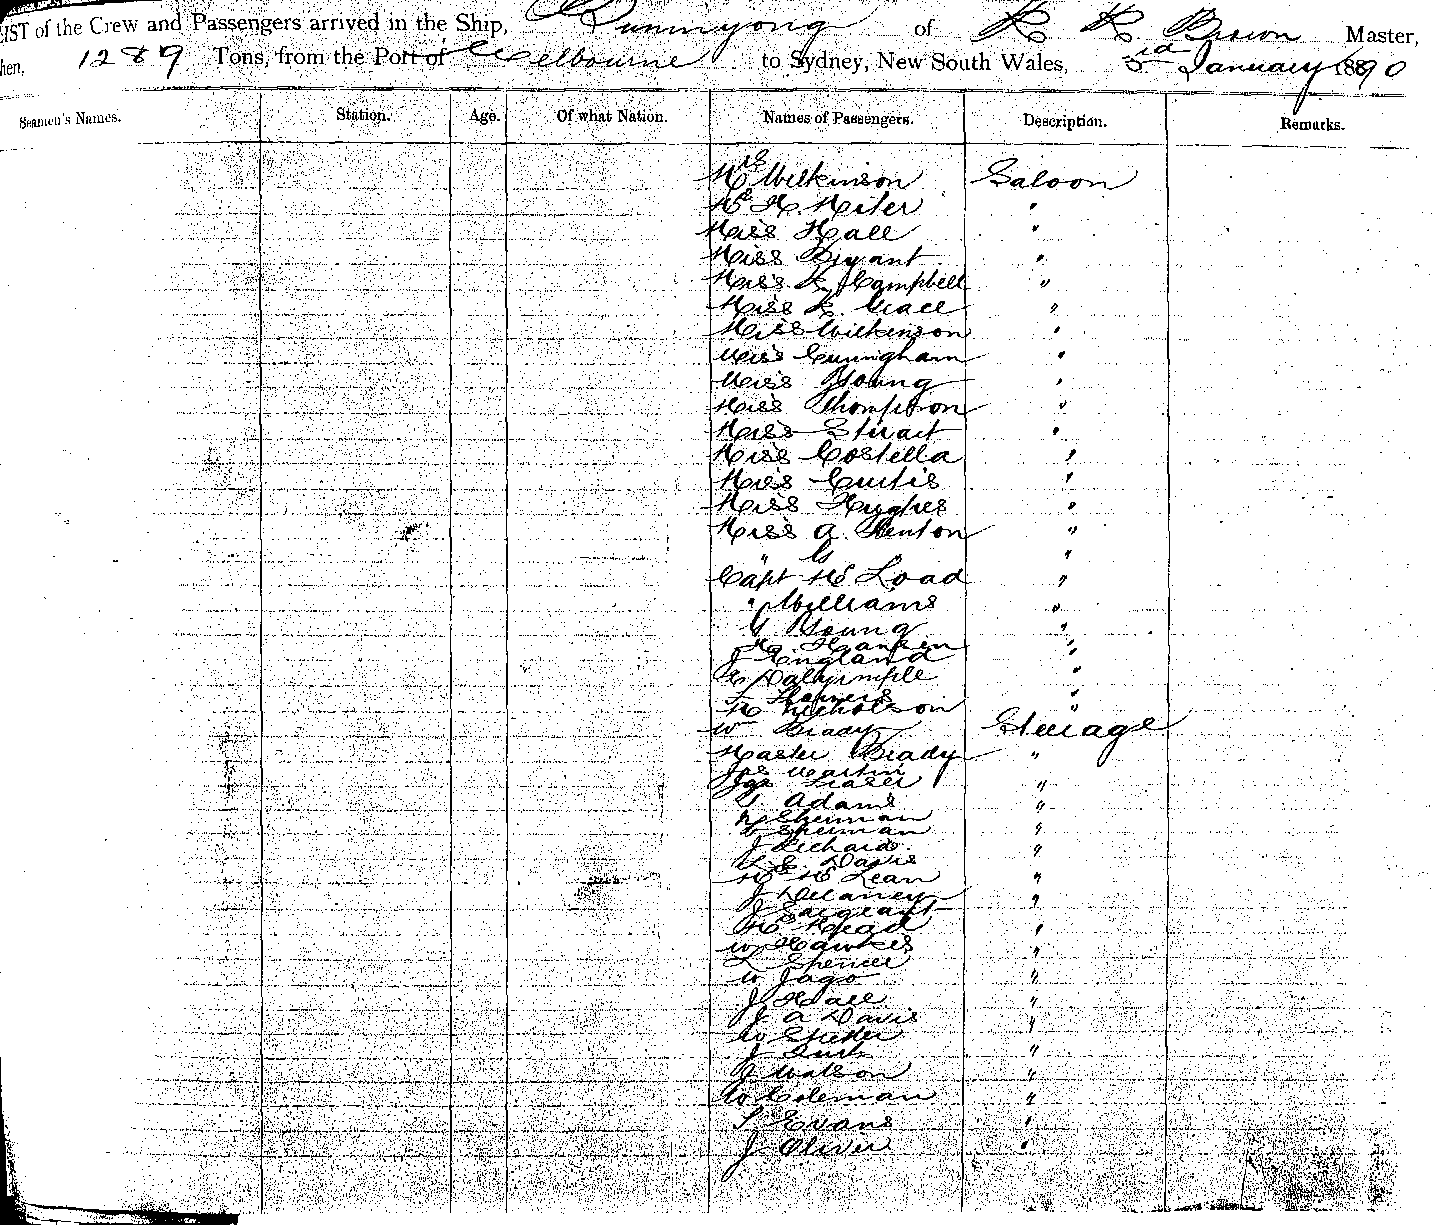 LIST of the Crew and Passengers arrived in the Ship, Buninyong of Brown Master,
1289 Tons, from the Port of Melbourne to Sydney, New South Wales, 3rd January 1890
Seamen's Names. Station. Age. Of what Nation. Names of Passengers. Description. Remarks.
Mrs Wilkinson Saloon
"
Miss Hall "
Miss Bryant "
Miss Campbell "
Miss Grace "
Miss Wilkinson "
Miss Cunningham "
Miss Young "
Miss Thompson "
Miss Stuart "
Miss Costella "
Miss Curtis "
Miss Hughes "
Miss A. Fenton "
" G "
Capt Mc Load "
" Williams "
G Young "
"
J England "
Dalrymple "
"
Nicholson "
W Brady Steerage
Master Brady "
Jas Martin
Jas Fraser "
G Adams "
"
"
J Richards "
Davis
Mc Lean "
J Delaney "
J Sargeant
Head "
W Hawkes "
L Spencer
W Jago "
J Hall "
J A Davis "
W
J "
J Watson "
W Coleman "
S Evans "
J Oliver "